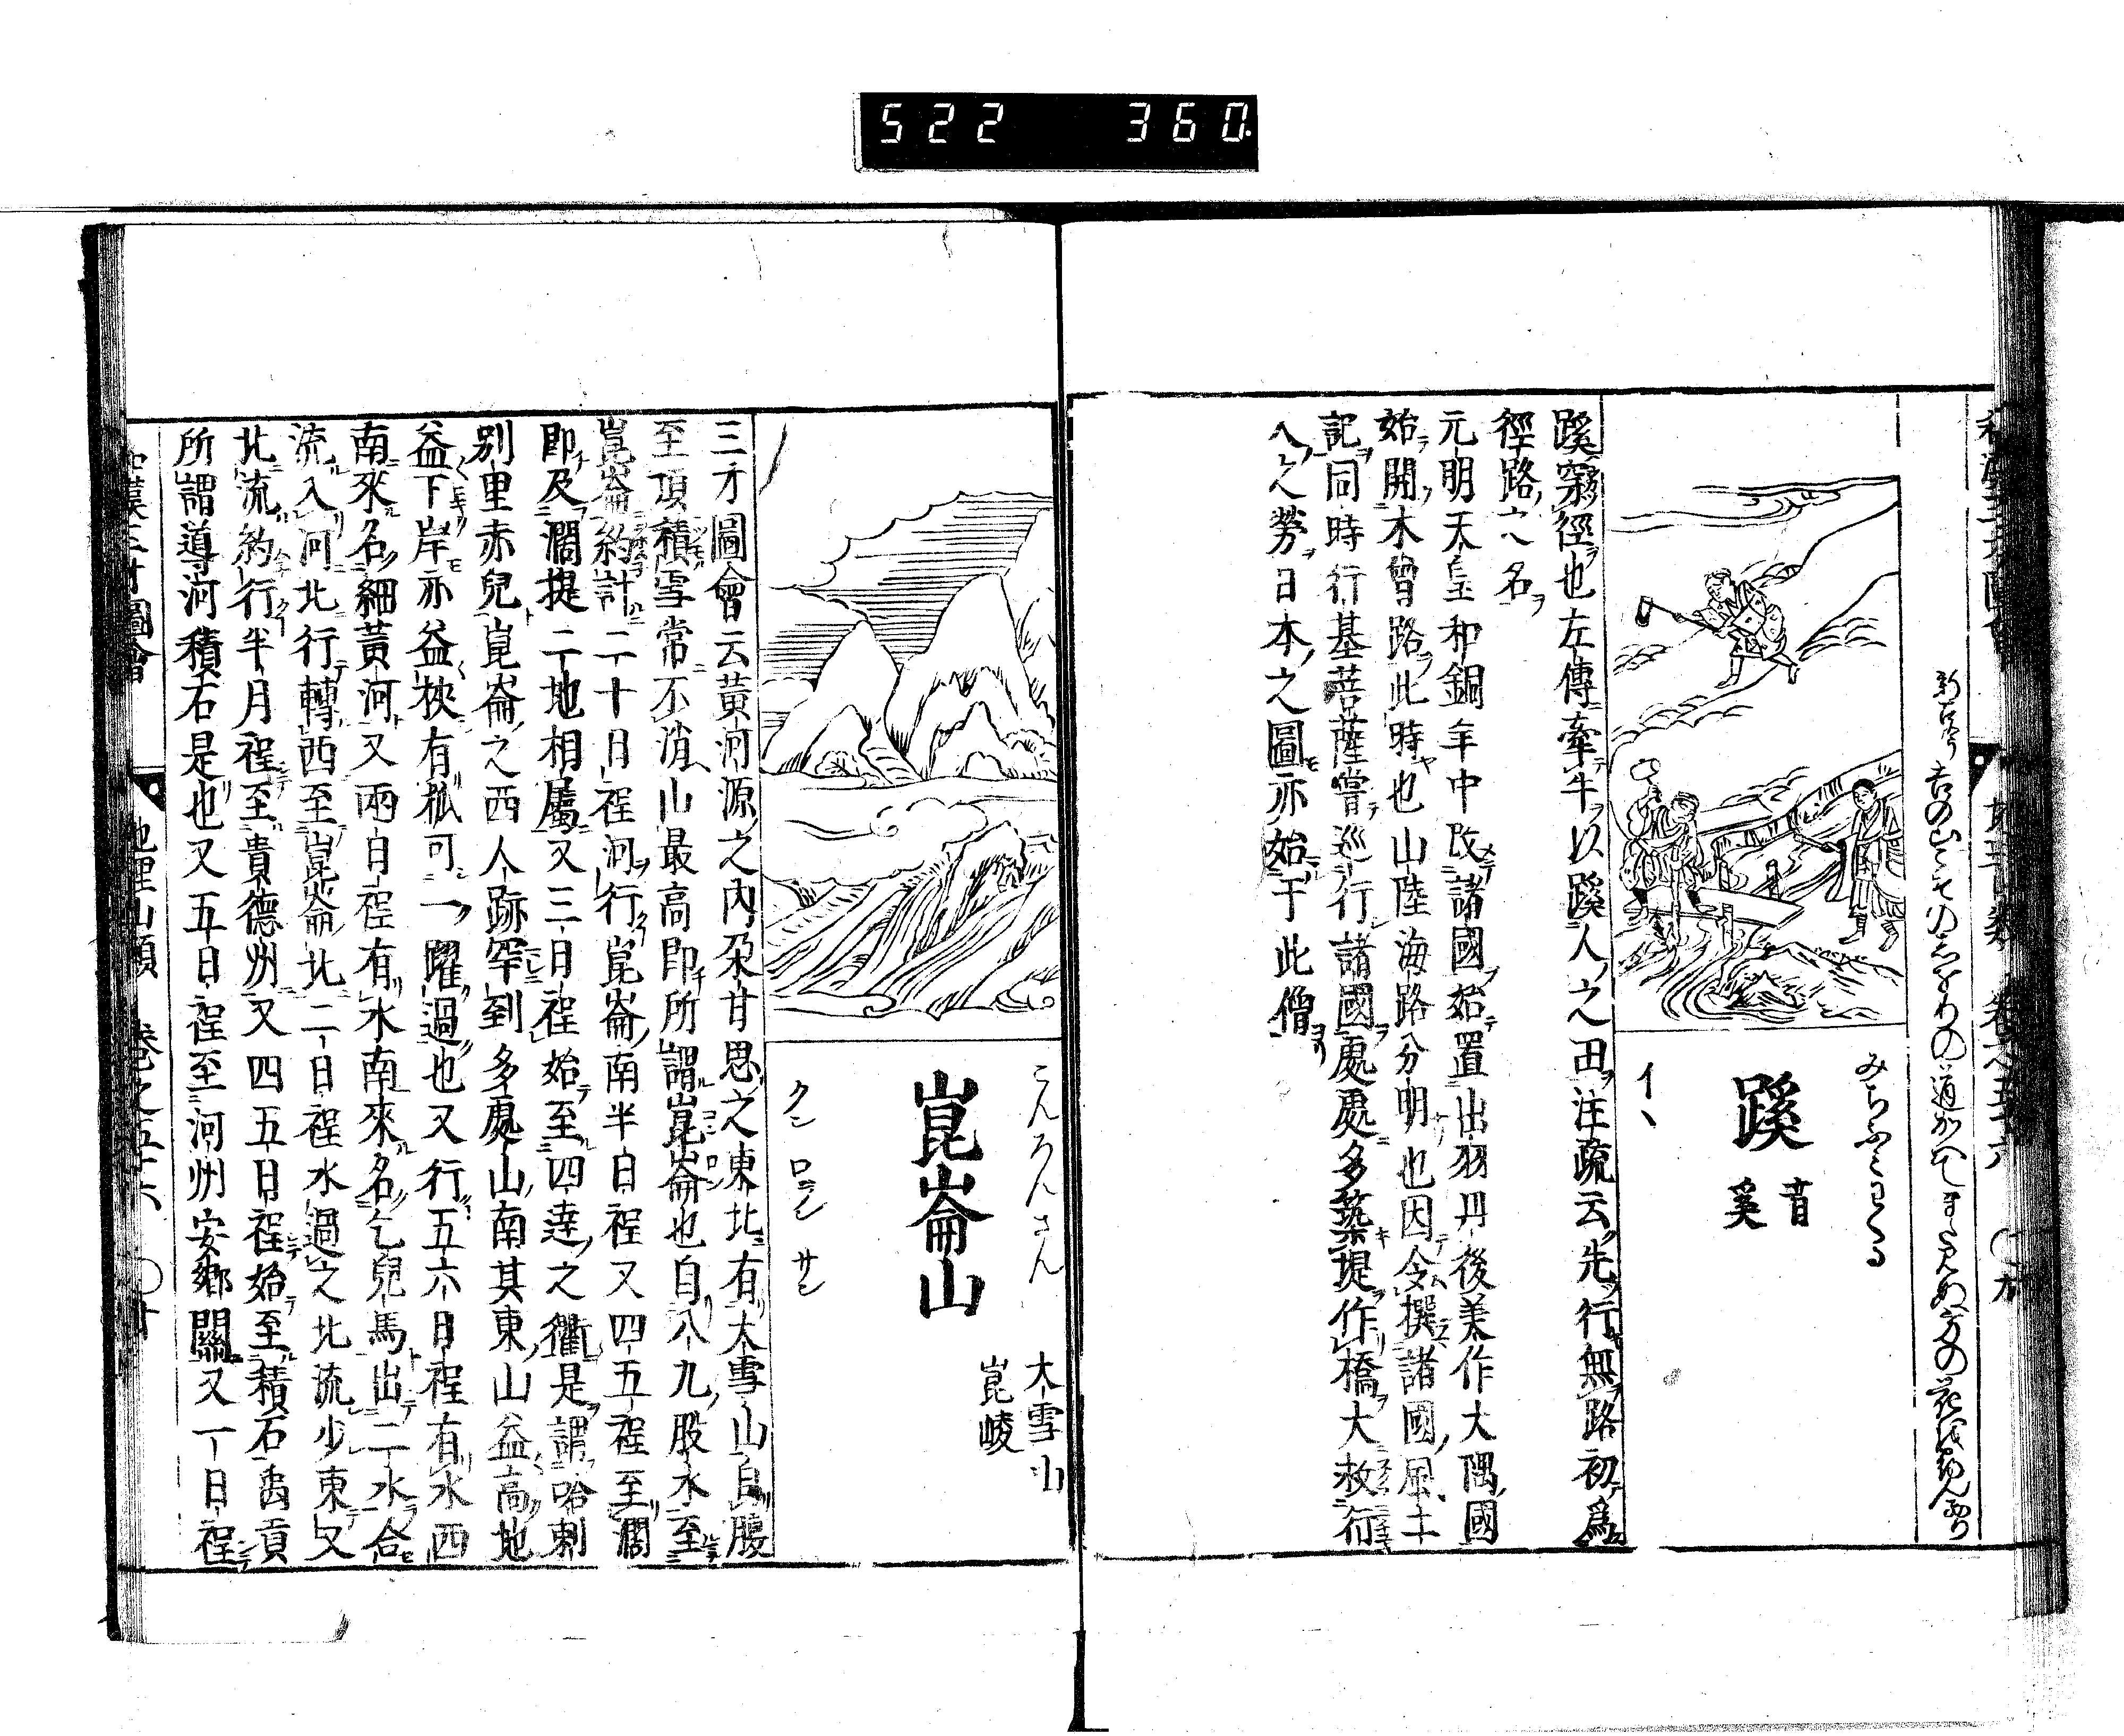 522 360
みちふみわくる
蹊
音
奚
蹊窮徑也左傳牽牛以蹊人之田注疏云先行無路初爲
徑路之名
元明天皇和銅年中改諸國始置出羽丹後美作大隅國
始開木曾路此時也山陸海路分明也因令撰諸國風土
記同時行基菩薩嘗巡行諸國處處多築堤作橋大救行
人之勞日本之圖亦始于此僧
こんろんさん
崑崙山
クン ロン サン
大雪山
崑崚
三才圖會云黃河源之内朶甘思之東北有大雪山自腹
至頂積雪常不消山最高即所謂崑崙也自八九股水至
崑崙約計二十日程河行崑崙南半日程又四五程至濶
即及濶提二地相屬又三日程始至四達之衢是謂哈剌
別里赤兒崑崙之西人跡罕到多處山南其東山益高地
益下岸亦益狹有狐可一躍過也又行五六日程有水西
南來名細黃河又兩日程有水南來名乞兒馬出二水合
流入河北行轉西至崑崙北二日程水過之北流少東又
北流約行半月程至貴德州又四五日程始至積石禹貢
所謂導河積石是也又五日程至河州安鄉關又一日程
和漢三才圖會 地理山類 卷之五十六 ○廿